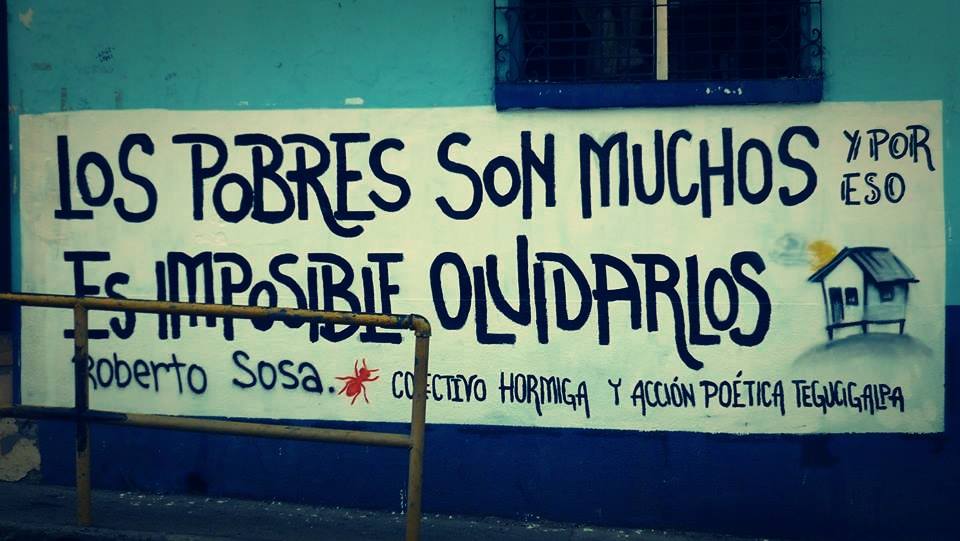 LOS POBRES SON MUCHOS Y POR
ESO
ES IMPOSIBLE OLVIDARLOS
Roberto Sosa.
COLECTIVO HORMIGA Y ACCIÓN POÉTICA TEGUCIGALPA